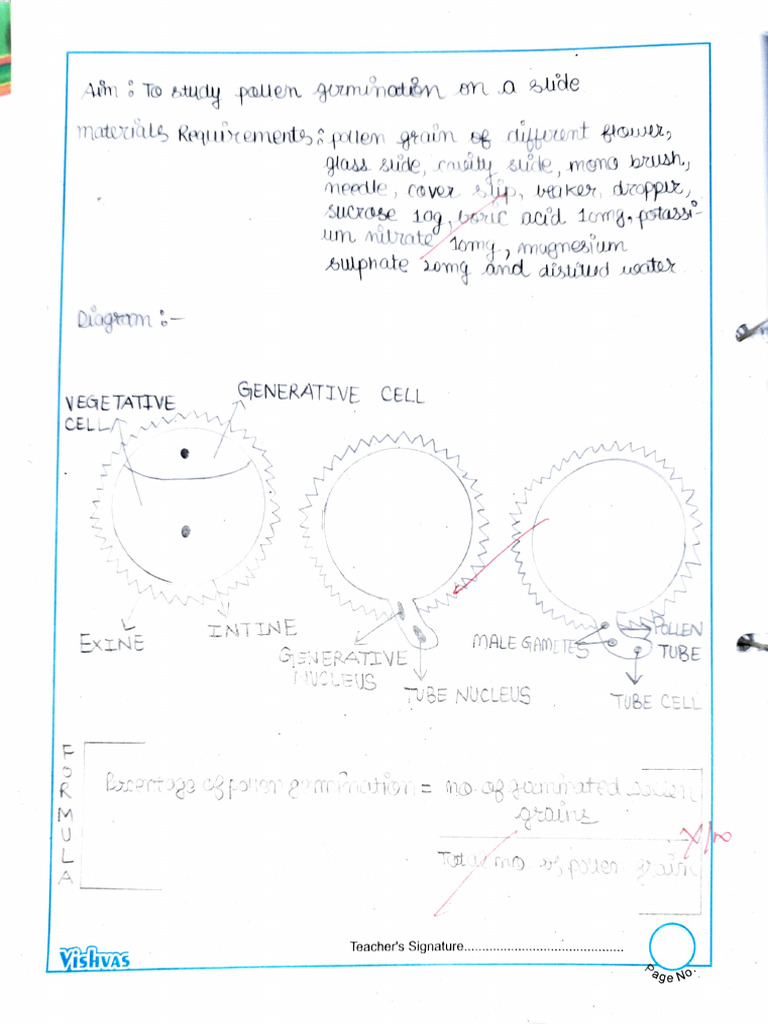 Aim : To study pollen germination on a slide
materials Requirements : pollen grain of different flower,
glass slide, cavity slide, mono brush,
needle, cover slip, beaker, dropper,
sucrose 10g, boric acid 10mg, potassi-
um nitrate 10mg, magnesium
sulphate 20mg and distilled water
Diagram :-
VEGETATIVE
CELL
GENERATIVE CELL
EXINE
INTINE
GENERATIVE
NUCLEUS
TUBE NUCLEUS
MALE GAMETES
POLLEN
TUBE
TUBE CELL
FORMULA
of pollen germination = no. of germinated pollen
grains
Total no of pollen grain
Teacher's Signature
Vishvas
Page No.